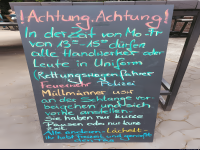 !Achtung, Achtung!
In der Zeit von Mo-Fr
von 13⁰⁰-15⁰⁰ dürfen
alle Handwerker oder
Leute in Uniform
(Rettungswagenfahrer
Feuerwehr Polizei
Müllmänner usw
an der Schlange vor-
beigehen und sich
vorne anstellen.
Sie haben nur kurze
Pausen oder nur kurz
Zeit
Alle anderen Lächeln